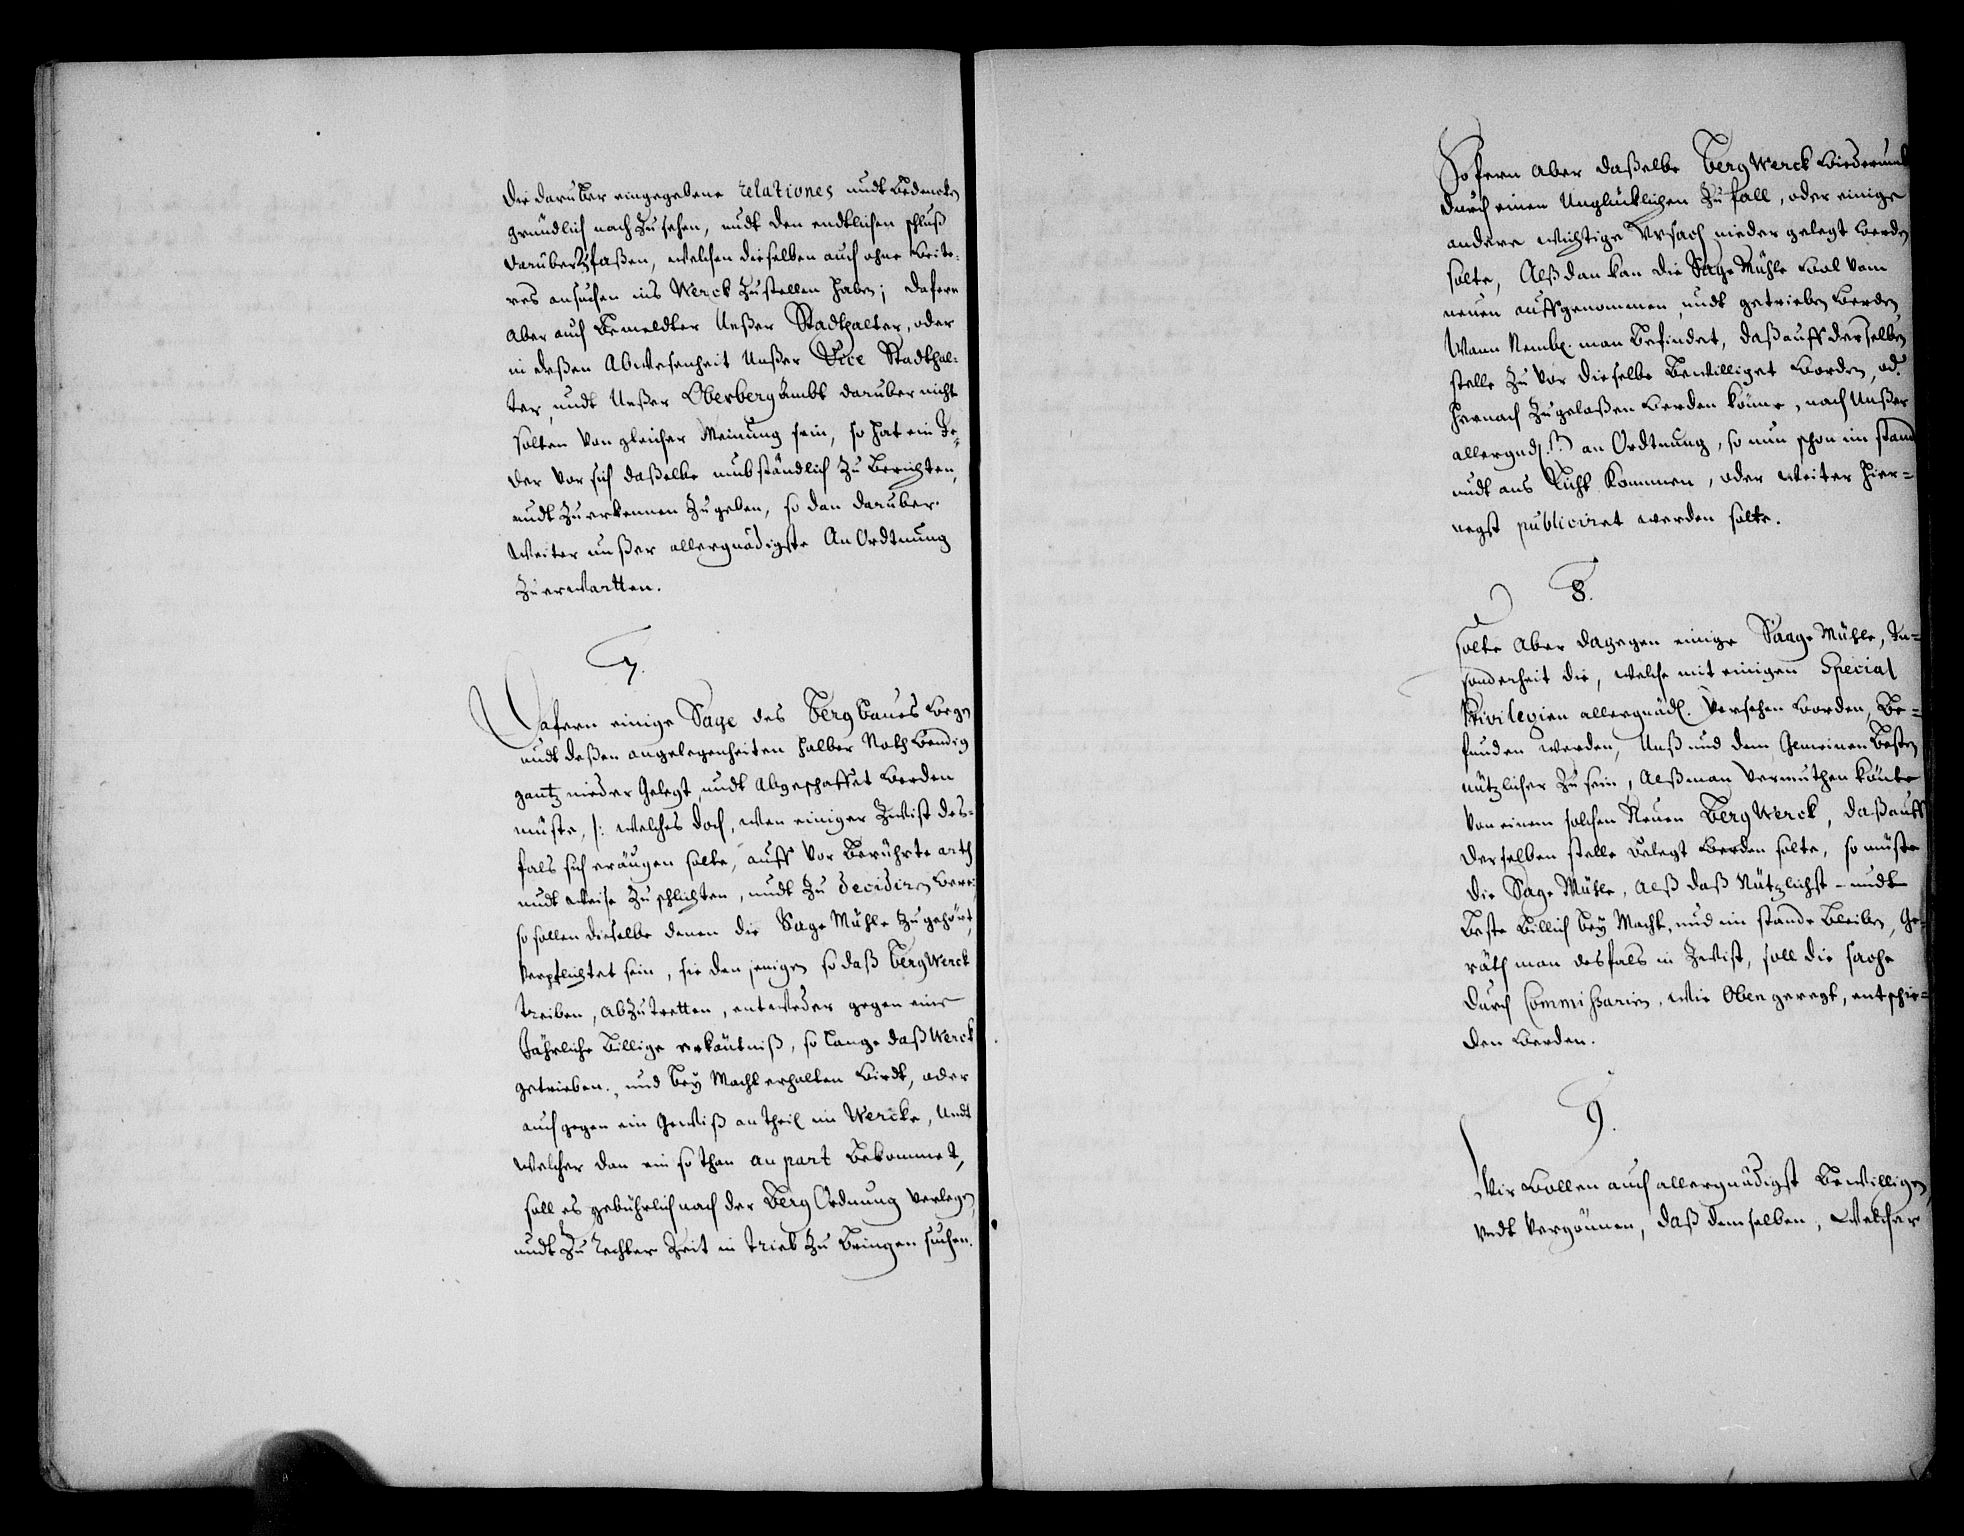 die darüber eingegebene relationes undt bedencken
gründlich nach Zu sehen, undt den endtlichen schluß
darüber Zfaßen, welchen dieselben auch ohne weite-
res ansuchen ins Werck Zustellen haben; dafern
aber auch bemeldter Unßer Stadthalter, oder
in deßen Abwesenheit Unßer Vice Stadthal-
ter, undt Unßer Oberberg Ambt darüber nicht
solten von gleicher Meinung sein, so hat ein Je-
der vor sich daßelbe umbständlich Zu berichten,
undt Zuerkennen Zugeben, so dan darüber
Weiter unßer allergnädigste An Ordtnung
Zuerwartten.
7.
Dafern einige Sage des Berg baues wegen
undt deßen angelegenheiten halber Noth wendig
gantz nieder Gelegt, undt Abgeschaffet werden
müste, /: welches doch, wen einiger Zwist des-
fals sich eräugen solte, auff vor berührte arth
undt weise Zu schlichten, undt Zu decidiren were
so sollen dieselbe denen die Sage Mühle Zugehört,
verpflichtet sein, sie den jenigen so daß BergWerck
treiben, abZutretten, entweder gegen eine
Jährliche billige erkäntniß, so lange daß Werck
getrieben, und bey Macht erhalten wirdt, oder
auch gegen ein Gewiß antheil im Wercke, Undt
welcher dan ein so than an part bekommet,
soll es gebührlich nach der Berg Ordnung verlegen
undt Zu rechter Zeit in Trieb Zu bringen suchen.
Sofern aber daßelbe BergWerck wiederumb
durch einen Unglücklichen Zufall, oder einige
andere wichtige Ursach nieder gelegt werden
solte, Alß dan kan die Sage Mühle wol vom
neuen auffgenommen, undt getrieben werden
Wann Nembl. man befindet, daß auff derselben
stelle Zu vor dieselbe bewilliget worden, od.
hernach Zugelaßen werden könne, nach Unßer
allergnd.st an Ordtnung, so nun schon im stand
undt ans Licht Kommen, oder weiter hier-
negst publiciret werden solte.
8.
Solte Aber dagegen einige Saage Mühle, In-
sonderheit die, welche mit einigen Special
Privilegien allergnädl. versehen worden, be-
funden werden, Unß und dem Gemeinen besten
nützlicher Zu sein, Alß man vermuthen könte
von einem solchen Neuen BergWerck, daß auff
derselben stelle belegt werden solte, so müste
die Sage Mühle, Alß daß Nützlichst- undt
beste billich bey Macht, und im stande bleiben, Ge-
räth man desfals in Zwist, soll die sache
durch Commißarien, wie Oben geregt, entschie-
den werden.
9.
Wir wollen auch allergnädigst bewilligen
undt vergönnen, daß demselben, welcher